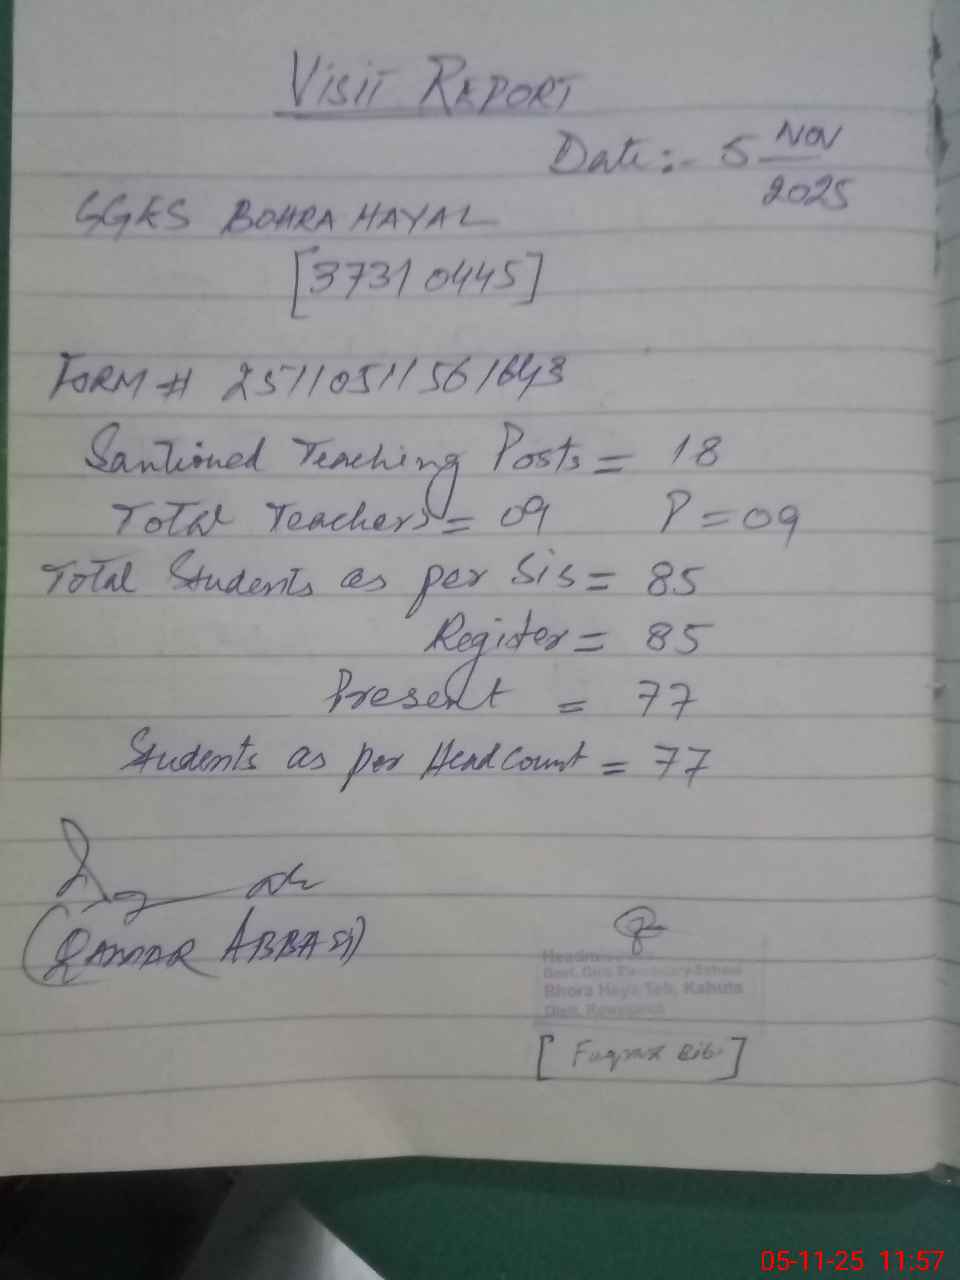 VISIT REPORT
Date:- 5 NOV
2025
GGES BOHRA HAYAL
[37310445]
FORM # 2511051156 1643
Santioned Teaching Posts = 18
Total Teachers = 09 P = 09
Total Students as per Sis = 85
Register = 85
Present = 77
Students as per Head Count = 77
(QAMAR ABBASI)
Govt. Girls Elementary School
Bhora Haya Teh. Kahuta
Distt. Rawalpindi
[ Bibi ]
05-11-25 11:57